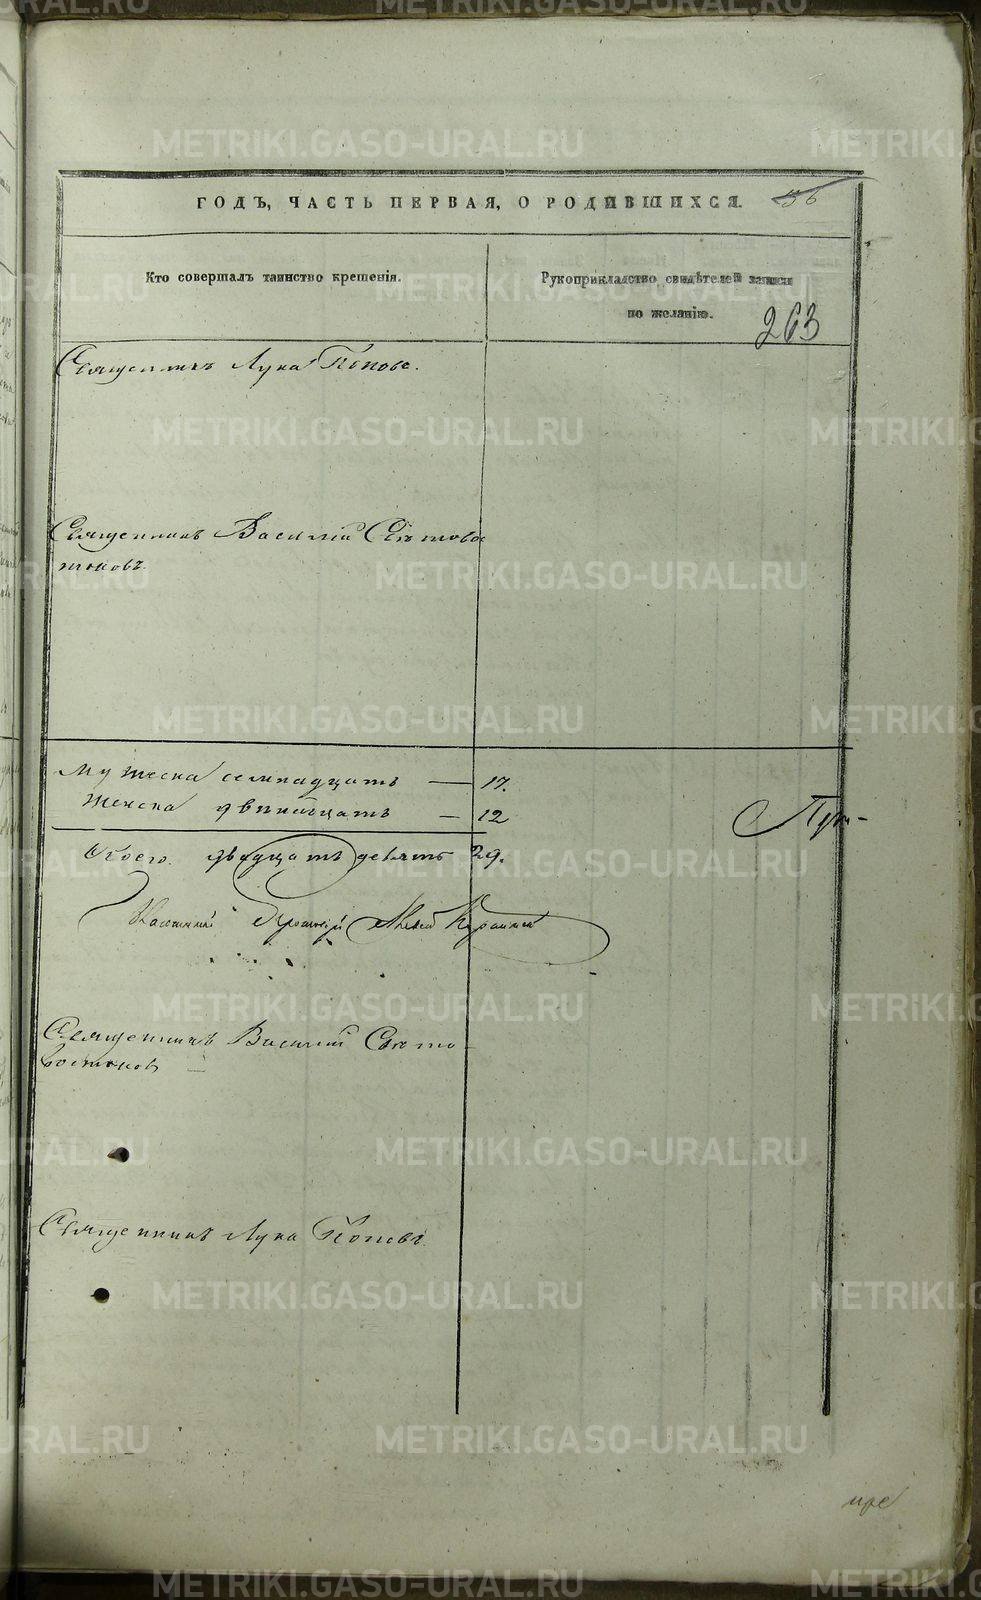 ГОДЪ, ЧАСТЬ ПЕРВАЯ, О РОДИВШИХСЯ.
Кто совершалъ таинство крещенія.
Рукоприкладство свидѣтелей записи
по желанію.
263
Священникъ Лука Поповъ.
Священникъ Василій Свѣтовос
токовъ.
Мужеска семнадцать — 17.
Женска двѣнадцать — 12
Обоего двадцать девять 29.
Священникъ Василій Свѣто
востоковъ
Священникъ Лука Поповъ.
METRIKI.GASO-URAL.RU